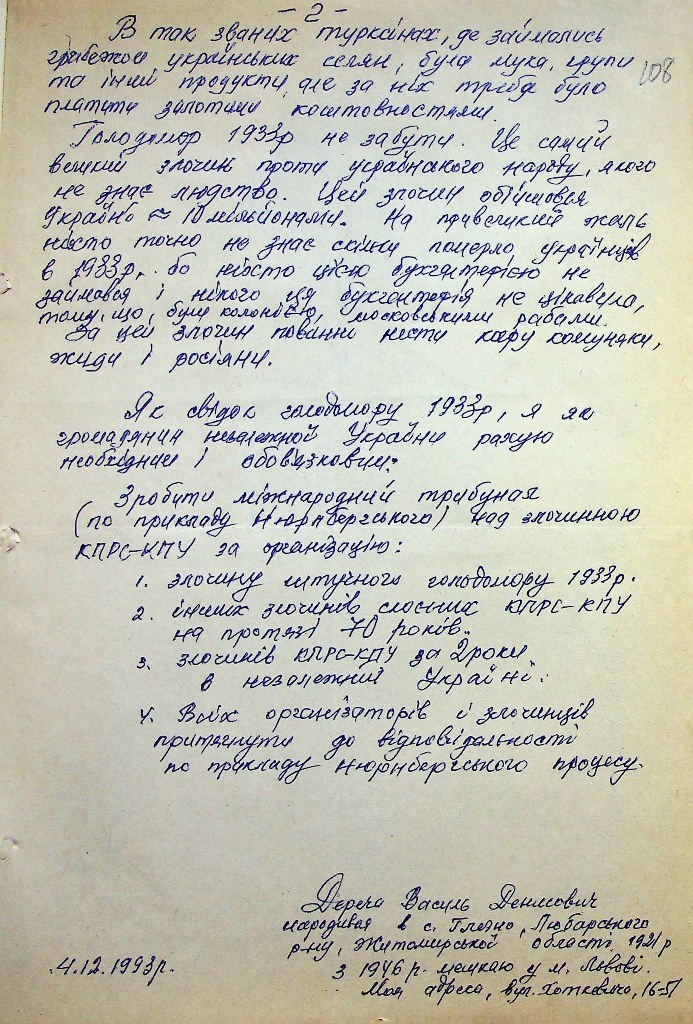 - 2 -
108
В так званих турксінах, де займались
грабежом українських селян, була мука, крупи
та інші продукти, але за них треба було
платити золотими коштовностями.
Голодомор 1933р не забути. Це самий
великий злочин проти українського народу, якого
не знає людство. Цей злочин обійшовся
Україно ≈ 10 мільйонами. На превеликий жаль
ніхто точно не знає скільки померло українців
в 1933р. бо ніхто цією бухгалтерією не
займався і нікого ця бухгалтерія не цікавила,
тому, що, були колонією, московськими рабами.
За цей злочин повинні нести кару комуняки,
жиди і росіяни.
Як свідок голодомору 1933р, я як
громадянин незалежної України рахую
необхідним і обов'язковим:
Зробити міжнародний трибунал
(по прикладу Нюрнбергського) над злочинною
КПРС-КПУ за організацію:
1. злочину штучного голодомору 1933р.
2. інших злочинів КПРС-КПУ
на протязі 70 років.
3. злочинів КПРС-КПУ за 2 роки
в незалежній Україні.
4. Всіх організаторів і злочинців
притягнути до відповідальності
по прикладу Нюрнбергського процесу.
Василь Денисович
народився в с. Любарського
р-ну, Житомирської області, 1921р
.4.12.1993р.
З 1946р. мешкаю у м. Львові.
Моя адреса, вул. Хоткевича, 16-51